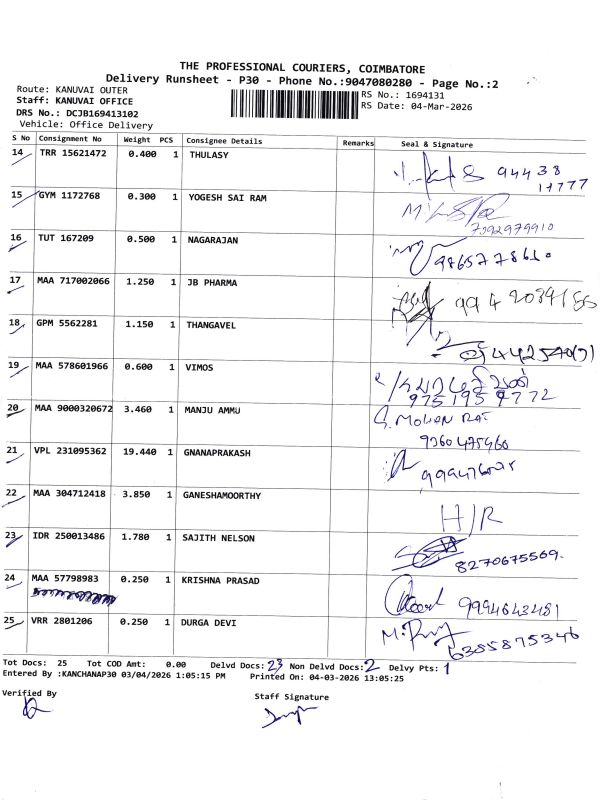 THE PROFESSIONAL COURIERS, COIMBATORE
Delivery Runsheet - P30 - Phone No.:9047080280 - Page No.:2
Route: KANUVAI OUTER
Staff: KANUVAI OFFICE
DRS No.: DCJB169413102
Vehicle: Office Delivery
RS No.: 1694131
RS Date: 04-Mar-2026
S No Consignment No Weight PCS Consignee Details Remarks Seal & Signature
14 TRR 15621472 0.400 1 THULASY 94438
17777
15 GYM 1172768 0.300 1 YOGESH SAI RAM
7092979910
16 TUT 167209 0.500 1 NAGARAJAN
17 MAA 717002066 1.250 1 JB PHARMA
18 GPM 5562281 1.150 1 THANGAVEL
19 MAA 578601966 0.600 1 VIMOS
20 MAA 9000320672 3.460 1 MANJU AMMU S. MOHAN RAJ
9360475960
21 VPL 231095362 19.440 1 GNANAPRAKASH
22 MAA 304712418 3.850 1 GANESHAMOORTHY H/R
23 IDR 250013486 1.780 1 SAJITH NELSON 8270675569.
24 MAA 57798983 0.250 1 KRISHNA PRASAD 9994643481
25 VRR 2801206 0.250 1 DURGA DEVI 6385875346
Tot Docs: 25 Tot COD Amt: 0.00 Delvd Docs: 23 Non Delvd Docs: 2 Delvy Pts: 1
Entered By :KANCHANAP30 03/04/2026 1:05:15 PM Printed On: 04-03-2026 13:05:25
Verified By
Staff Signature